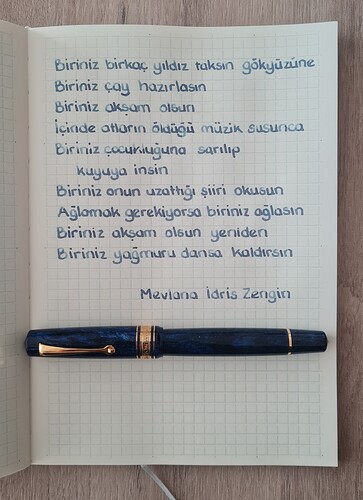 Biriniz birkaç yıldız taksın gökyüzüne
Biriniz çay hazırlasın
Biriniz akşam olsun
İçinde atların öldüğü müzik susunca
Biriniz çocukluğuna sarılıp
kuyuya insin
Biriniz onun uzattığı şiiri okusun
Ağlamak gerekiyorsa biriniz ağlasın
Biriniz akşam olsun yeniden
Biriniz yağmuru dansa kaldırsın
Mevlana İdris Zengin